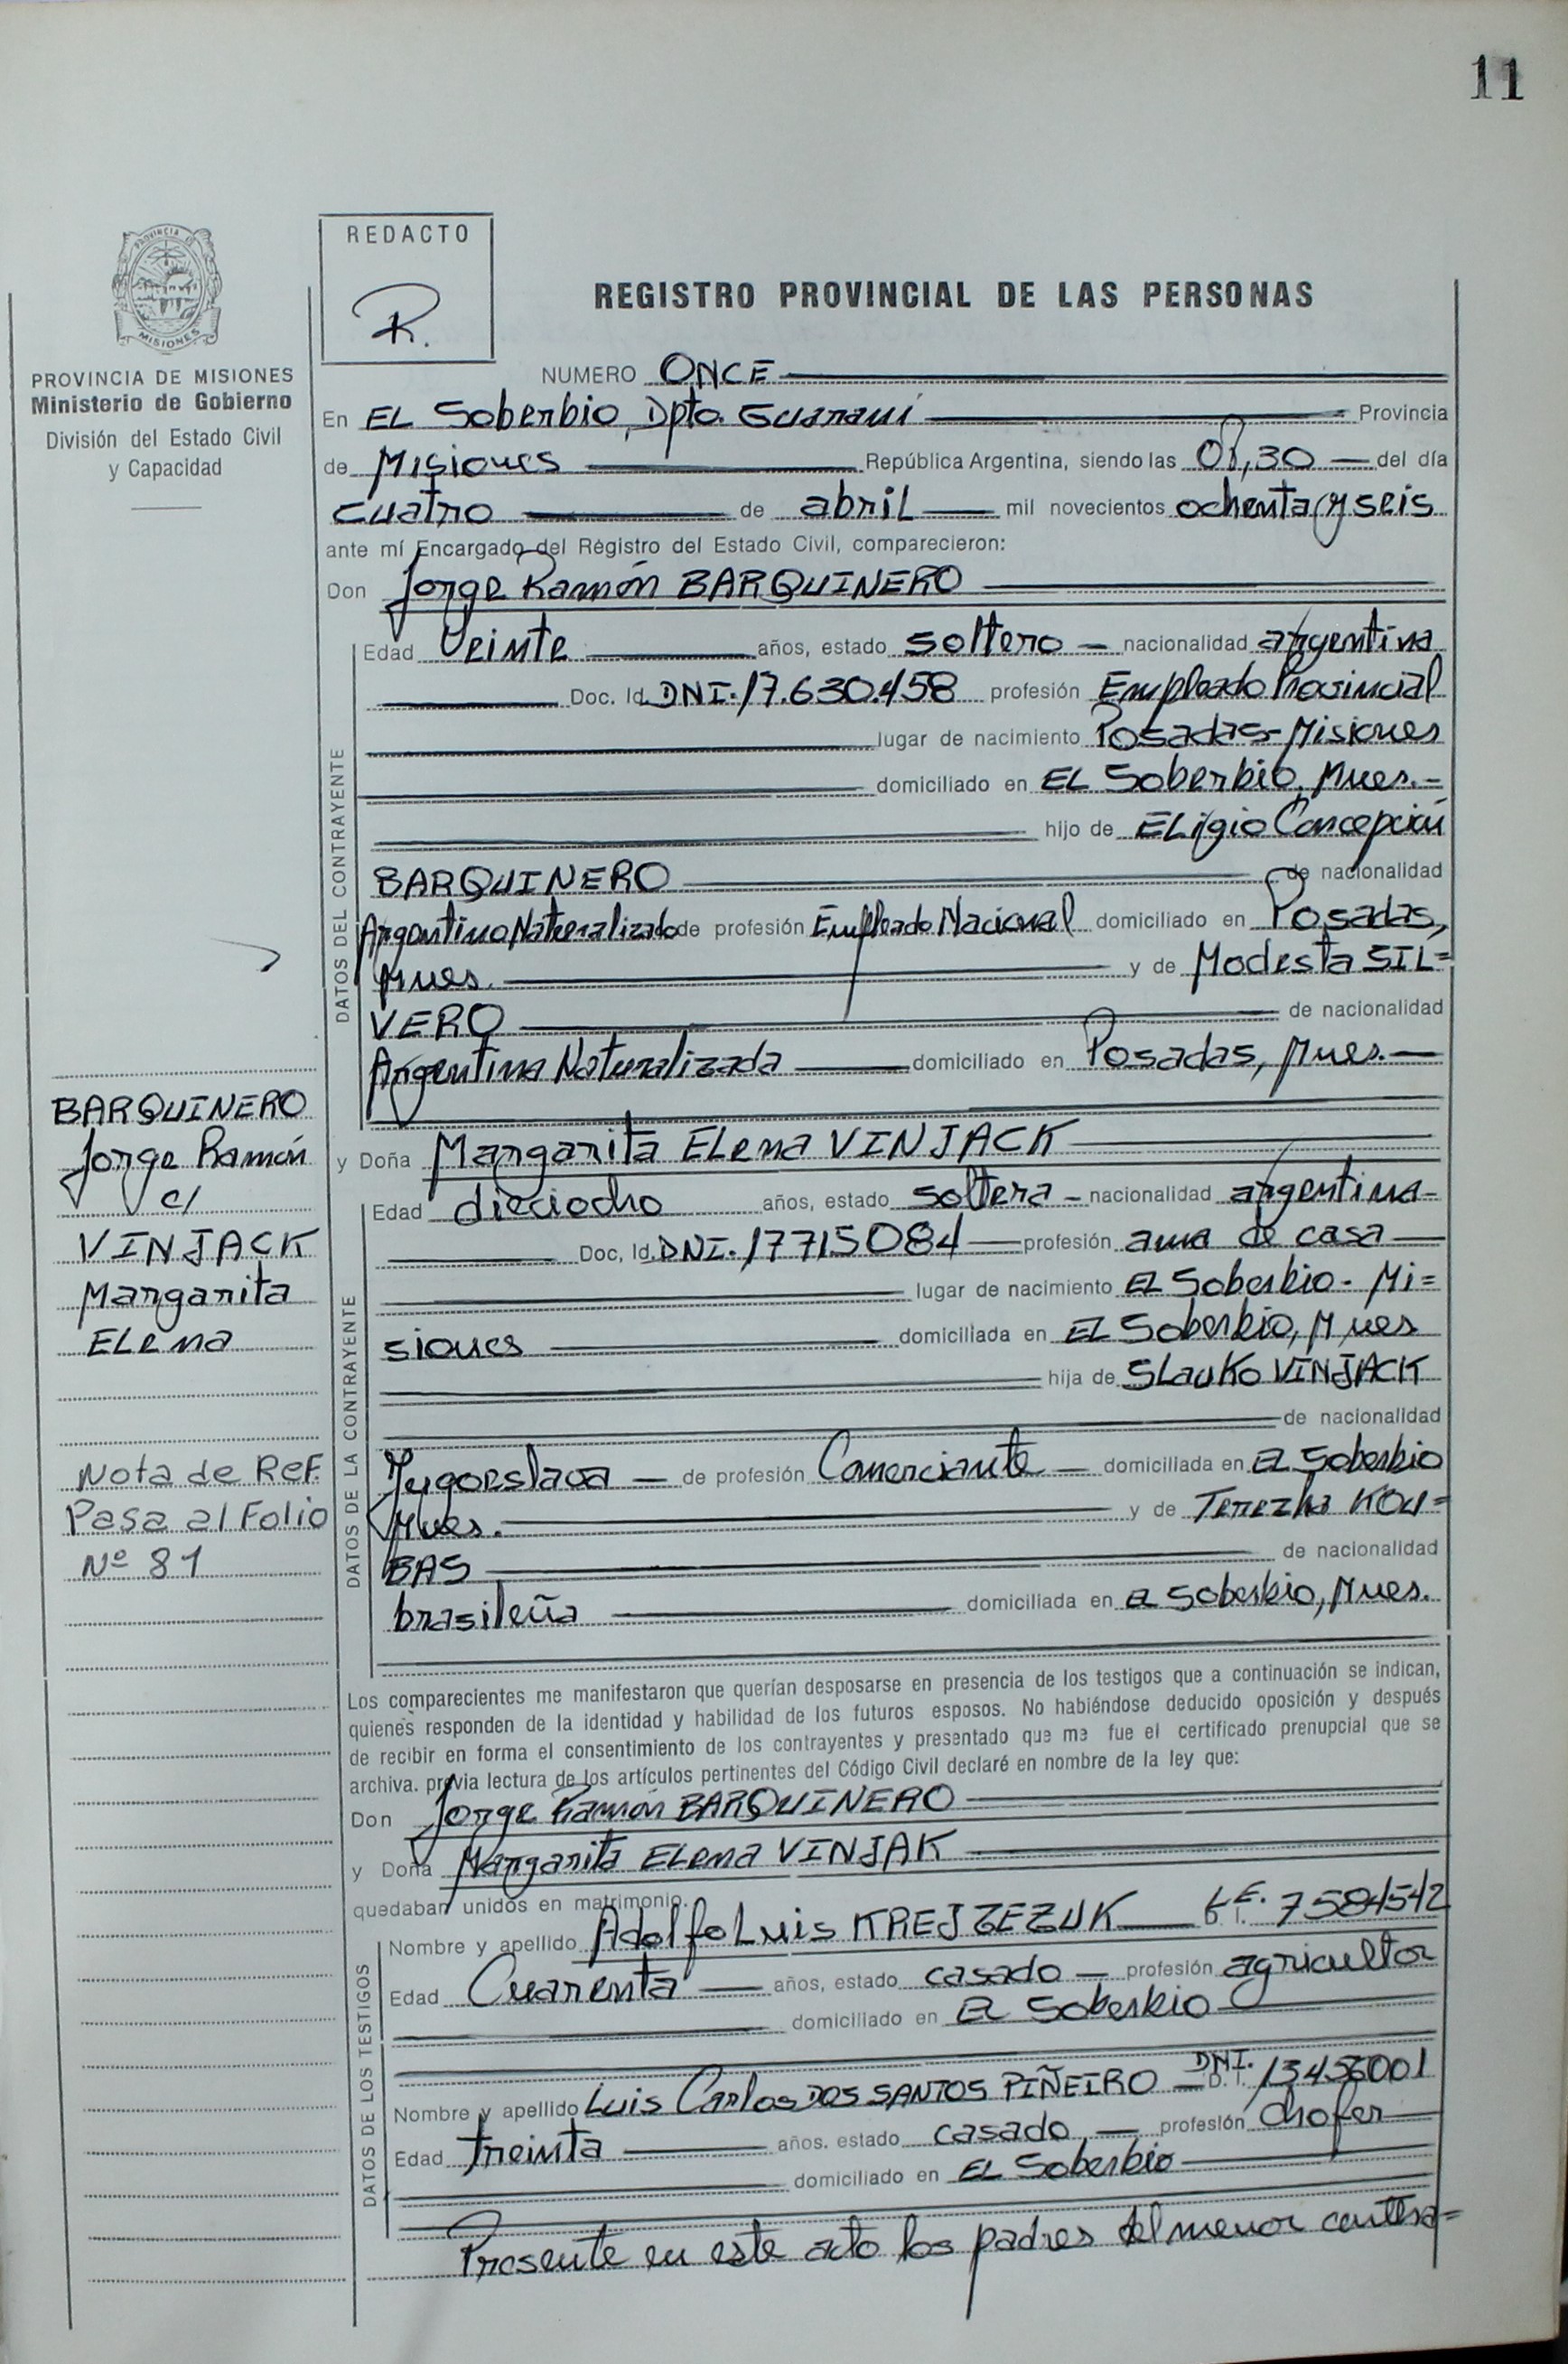 11
REDACTO
R.
PROVINCIA DE MISIONES
Ministerio de Gobierno
División del Estado Civil
y Capacidad
REGISTRO PROVINCIAL DE LAS PERSONAS
NUMERO ONCE
En EL Soberbio, Dpto. Guaraní Provincia
de Misiones República Argentina, siendo las 08,30 del día
cuatro de abril mil novecientos ochenta y seis
ante mí Encargado del Registro del Estado Civil, comparecieron:
Don Jorge Ramón BARQUINERO
DATOS DEL CONTRAYENTE
Edad Veinte años, estado soltero nacionalidad argentina
Doc. Id. DNI. 17.630.458 profesión Empleado Provincial
lugar de nacimiento Posadas- Misiones
domiciliado en EL Soberbio, Mnes.-
hijo de ELigio Concepción
BARQUINERO de nacionalidad
Argentino Naturalizado de profesión Empleado Nacional domiciliado en Posadas,
Mnes. y de Modesta SIL=
VERO de nacionalidad
Argentina Naturalizada domiciliado en Posadas, Mnes.
BARQUINERO
Jorge Ramón
c/
VINJACK
Margarita
ELena
Nota de Ref.
Pasa al Folio
Nº 81
y Doña Margarita ELena VINJACK
DATOS DE LA CONTRAYENTE
Edad dieciocho años, estado soltera nacionalidad argentina
Doc, Id. DNI. 17715084 profesión ama de casa
lugar de nacimiento EL Soberbio- Mi=
siones domiciliada en EL Soberbio, Mnes
hija de SLavKo VINJACK
de nacionalidad
Yugoeslava de profesión Comerciante domiciliada en EL Soberbio
Mnes. y de Terezha KOV=
BAS de nacionalidad
brasileña domiciliada en EL Soberbio, Mnes.
Los comparecientes me manifestaron que querían desposarse en presencia de los testigos que a continuación se indican,
quienes responden de la identidad y habilidad de los futuros esposos. No habiéndose deducido oposición y después
de recibir en forma el consentimiento de los contrayentes y presentado que me fue el certificado prenupcial que se
archiva. previa lectura de los artículos pertinentes del Código Civil declaré en nombre de la ley que:
Don Jorge Ramón BARQUINERO
y Doña Margarita ELena VINJAK
quedaban unidos en matrimonio.
DATOS DE LOS TESTIGOS
Nombre y apellido Adolfo Luis KREJZEZUK L.E. D. I. 7584542
Edad Cuarenta años, estado casado profesión agricultor
domiciliado en EL Soberbio
Nombre y apellido Luis Carlos DOS SANTOS PIÑEIRO DNI. D. I. 13456001
Edad treinta años. estado casado profesión chofer
domiciliado en EL Soberbio
Presente en este acto los padres del menor contra=